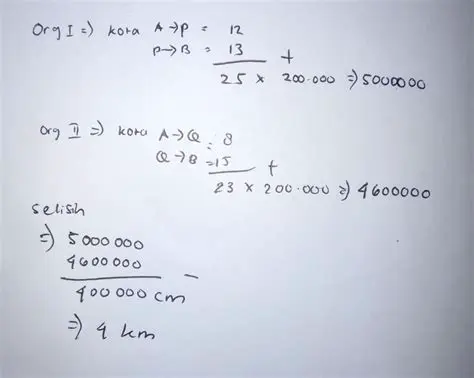 Org I => kota A→P = 12
P→B = 13
+
25 x 200.000 => 5000000
Org II => kota A→Q = 8
Q→B = 15
+
23 x 200.000 => 4600000
Selisih
=> 5000000
4600000
-
400000 cm
=> 4 km